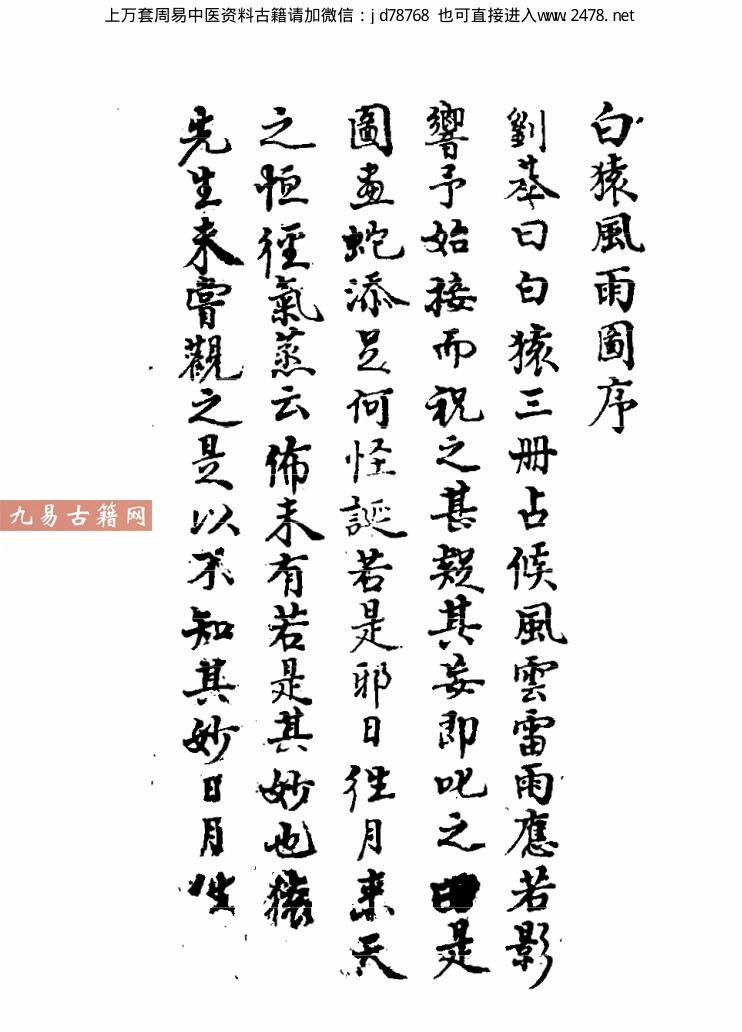 上万套周易中医资料古籍请加微信：jd78768 也可直接进入www.2478.net
白猿風雨圖序
劉基曰白猿三册占候風雲雷雨應若影
響予始接而視之甚疑其妄即叱之曰是
圖畫蛇添足何怪誕若是邪日徃月來天
之恒徑氣蒸云佈未有若是其妙也猿
先生未嘗觀之是以不知其妙日月徃
九易古籍网